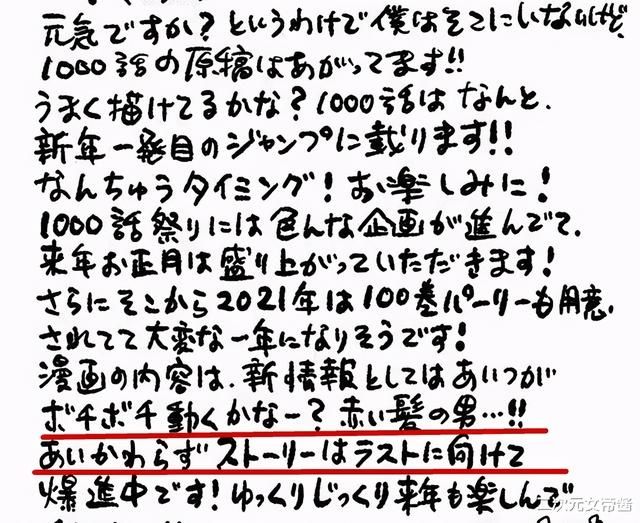 元気ですか?というわけで僕はそこにいないけど、
1000話の原稿はあがってます!!
うまく描けてるかな?1000話はなんと、
新年一発目のジャンプに載ります!!
なんちゅうタイミング!お楽しみに!
1000話祭りには色んな企画が進んでて、
来年お正月は盛り上がっていただきます!
さらにそこから2021年は100巻パーリーも用意、
されてて大変な一年になりそうです!
漫画の内容は、新情報としてはあいつが
ボチボチ動くかなー?赤い髪の男…!!
あいかわらずストーリーはラストに向けて
爆進中です!ゆっくりじっくり来年も楽しんで
二次元文帝酱